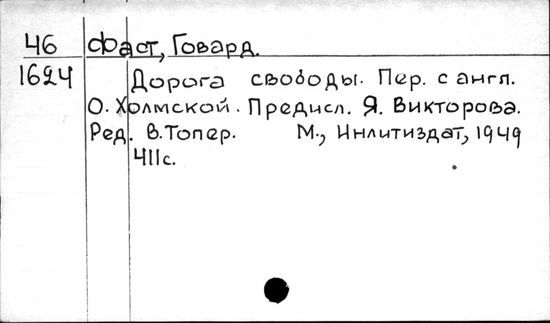 46 Фаст, Говард.
1624 Дорога свободы. Пер. с англ.
О. Холмской. Предисл. Я. Викторова.
Ред. В. Топер. М., Инлитиздат, 1949
411с.